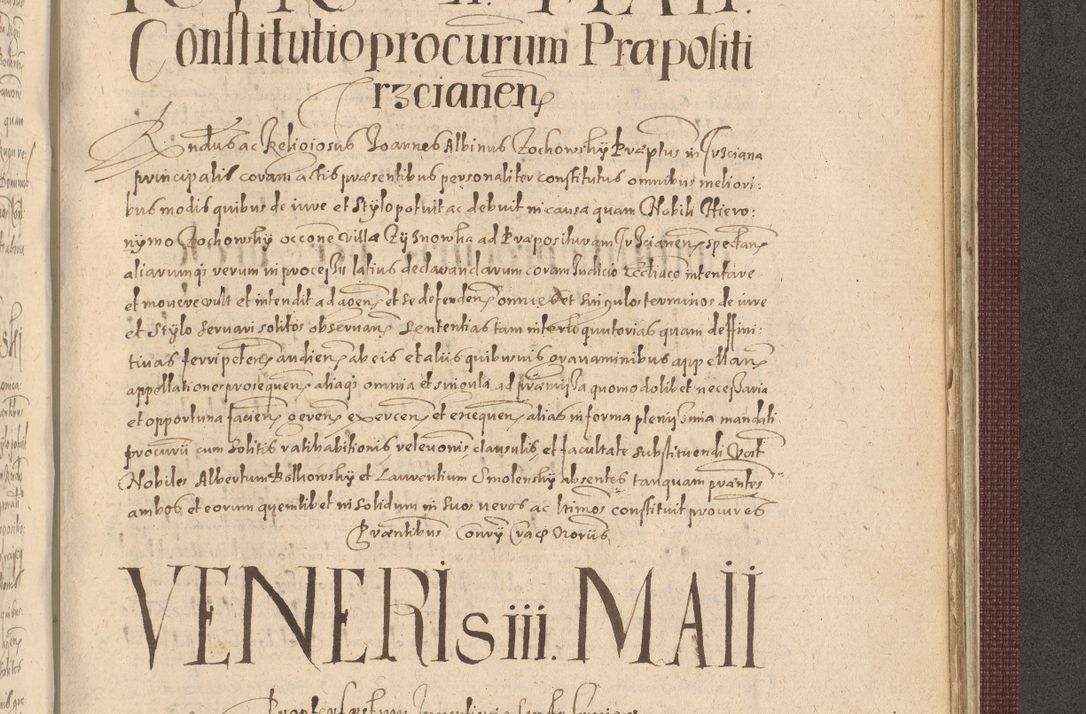 IOVIS II. MAII.
Constitutio procurum Præpositi
Trzcianen
Rndus ac Religiosus Joannes Albinus Zochowsky Præptus in Trzciana
principalis coram actis præsentibus personaliter constitutus omnibus meliori:
bus modis quibus de iure et stylo potuit ac debuit in causa quam Nobili Hiero:
nymo Zochowsky occone villæ Rzysnowka ad Præposituram Trzcianen spectan
aliarumq; rerum in processu latius declarandarum coram Judicio Ecclicō intentare
et movere vult et intendit ad agen et se defenden omnes et singulos terminos de iure
et stylo servari solitos observan sententias tam interloquutorias quam deffini:
tivas ferri peten audien ab eis et aliis quibusvis gravaminibus appellan
appellationes prosequen aliaq; omnia et singula ad præmissa quomodolibet necessaria
et opportuna facien geren exercen et exequen alias in forma plenissima mandati
procurii cum solitis ratihabitionis relevonis clausulis, et facultate substituendi Constt
Nobiles Albertum Bolkowsky et Laurentium Smolensky absentes tanquam præntes
ambos et eorum quemlibet in solidum in suos veros ac ltimos constituit procures
Præntibus Conry Crac Noriis
VENERIS iii. MAII